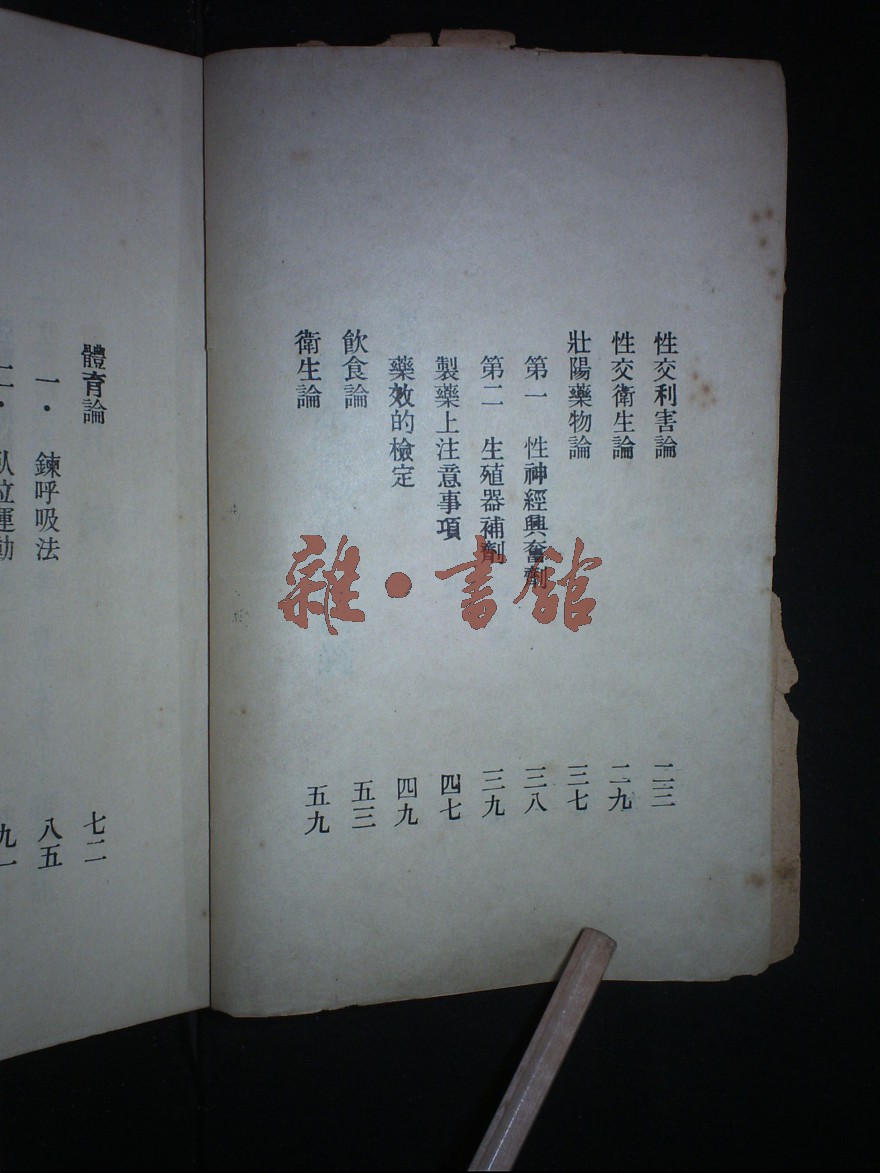 性交利害論 二三
性交衛生論 二九
壯陽藥物論 三七
第一 性神經興奮劑 三八
第二 生殖器補劑 三九
製藥上注意事項 四七
藥效的檢定 四九
飲食論 五三
衛生論 五九
體育論 七二
一・ 鍊呼吸法 八五
九一
雜・書館